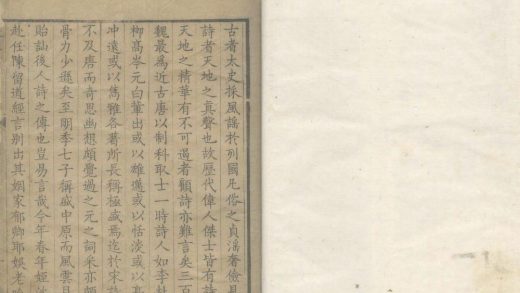 古者太史採風謡於列國民俗之貞滛奢儉具
詩者天地之真聲也故歷代偉人傑士皆有詩
天地之精華有不可遏者顧詩亦難言矣三百
魏最為近古唐以制科取士一時詩人如李杜
柳髙岑元白輩出或以雄邁或以恬淡或以髙
冲遠或以雋雅各著所長稱極盛焉迄於宋
不及唐而奇思幽想頗覺過之元之詞采亦
骨力少遜矣至明李七子稱盛中原而風雲月
貽訕後人詩之傳也豈易言哉今年春年姪
赴任陳留道經言别出其姻家郁卿耶娱老